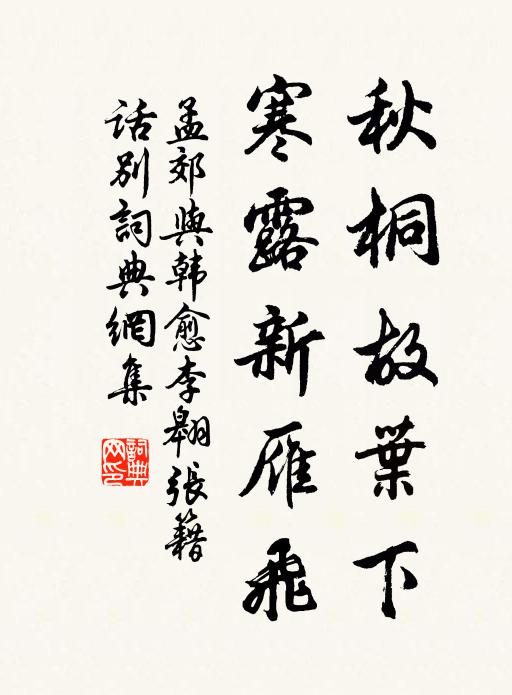 秋桐故葉下
寒露新雁飛
孟郊與韩愈李翱張籍
话别詞典網集
詞典网印